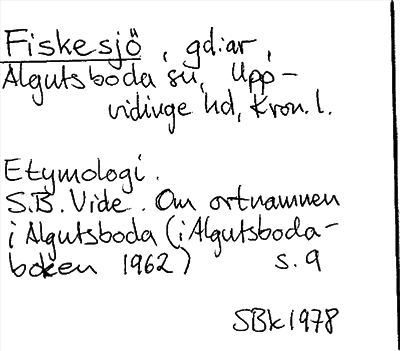 Fiskesjö, gdiar,
Algutsboda sn, Upp-
vidinge hd, Kron. l.
Etymologi.
S.B. Vide. Om ortnamnen
i Algutsboda (i Algutsboda-
boken 1962) s. 9
SBk 1978